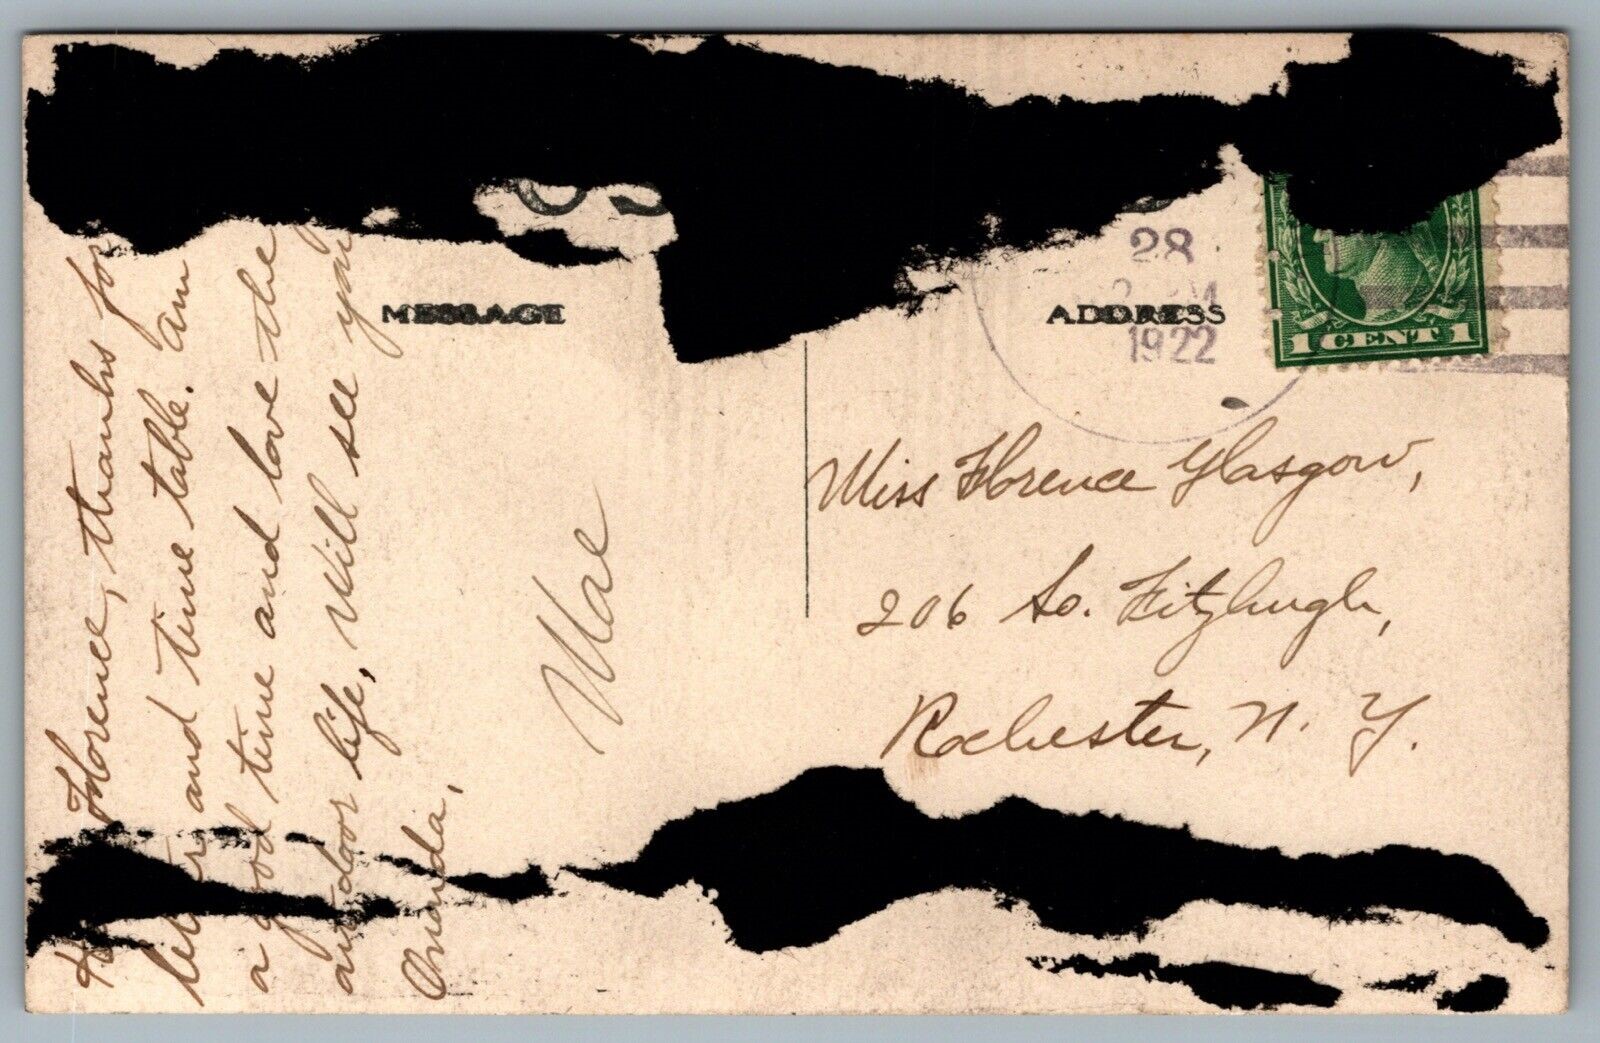 MESSAGE
ADDRESS
28
1922
1 CENT 1
Florence, thanks for
letter and time table. am
a good time and love the
outdoor life, Will see you
Mae
Miss Florence Glasgow,
206 So. Fitzhugh,
Rochester, N. Y.